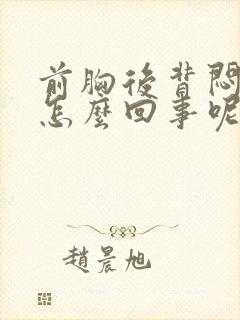 前胸後背悶
怎麼回事呢
趙晨旭